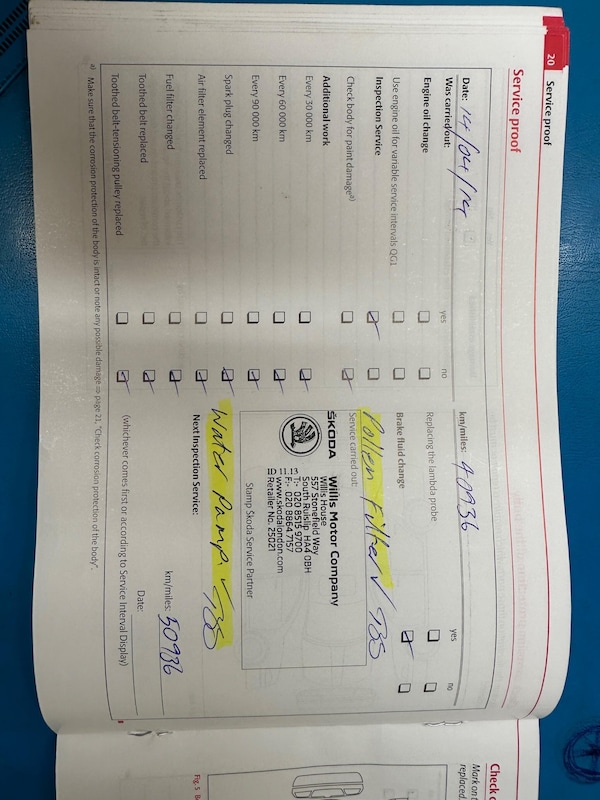 20 Service proof
Service proof
Date: 14/04/14
km/miles: 40936
Was carried out:
yes
no
Engine oil change
Use engine oil for variable service intervals QG1
Inspection Service
Check body for paint damage a)
Additional work
Every 30 000 km
Every 60 000 km
Every 90 000 km
Spark plug changed
Air filter element replaced
Fuel filter changed
Toothed belt replaced
Toothed belt-tensioning pulley replaced
yes
no
Replacing the lambda probe
Brake fluid change
Pollen Filter
Service carried out:
ŠKODA
Willis Motor Company
Willis House
557 Stonefield Way
South Ruislip, HA4 0BH
T:- 020 8515 9700
F:- 020 8864 7157
www.skodalondon.com
Retailer No. 25021
ID 11.13
Stamp Škoda Service Partner
Water Pump
Next Inspection Service:
km/miles: 50936
Date:
(whichever comes first or according to Service Interval Display)
a) Make sure that the corrosion protection of the body is intact or note any possible damage ⇒ page 21, "Check corrosion protection of the body".
Check
Mark on
replaced
Fig. 5